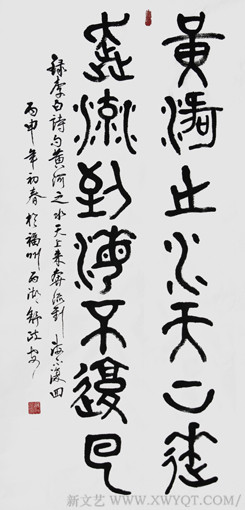 黄河之水天上来
奔流到海不复回
录李白诗句黄河之水天上来奔流到海不复回
丙申年初春于福州
新文艺 WWW.XWYQT.COM/